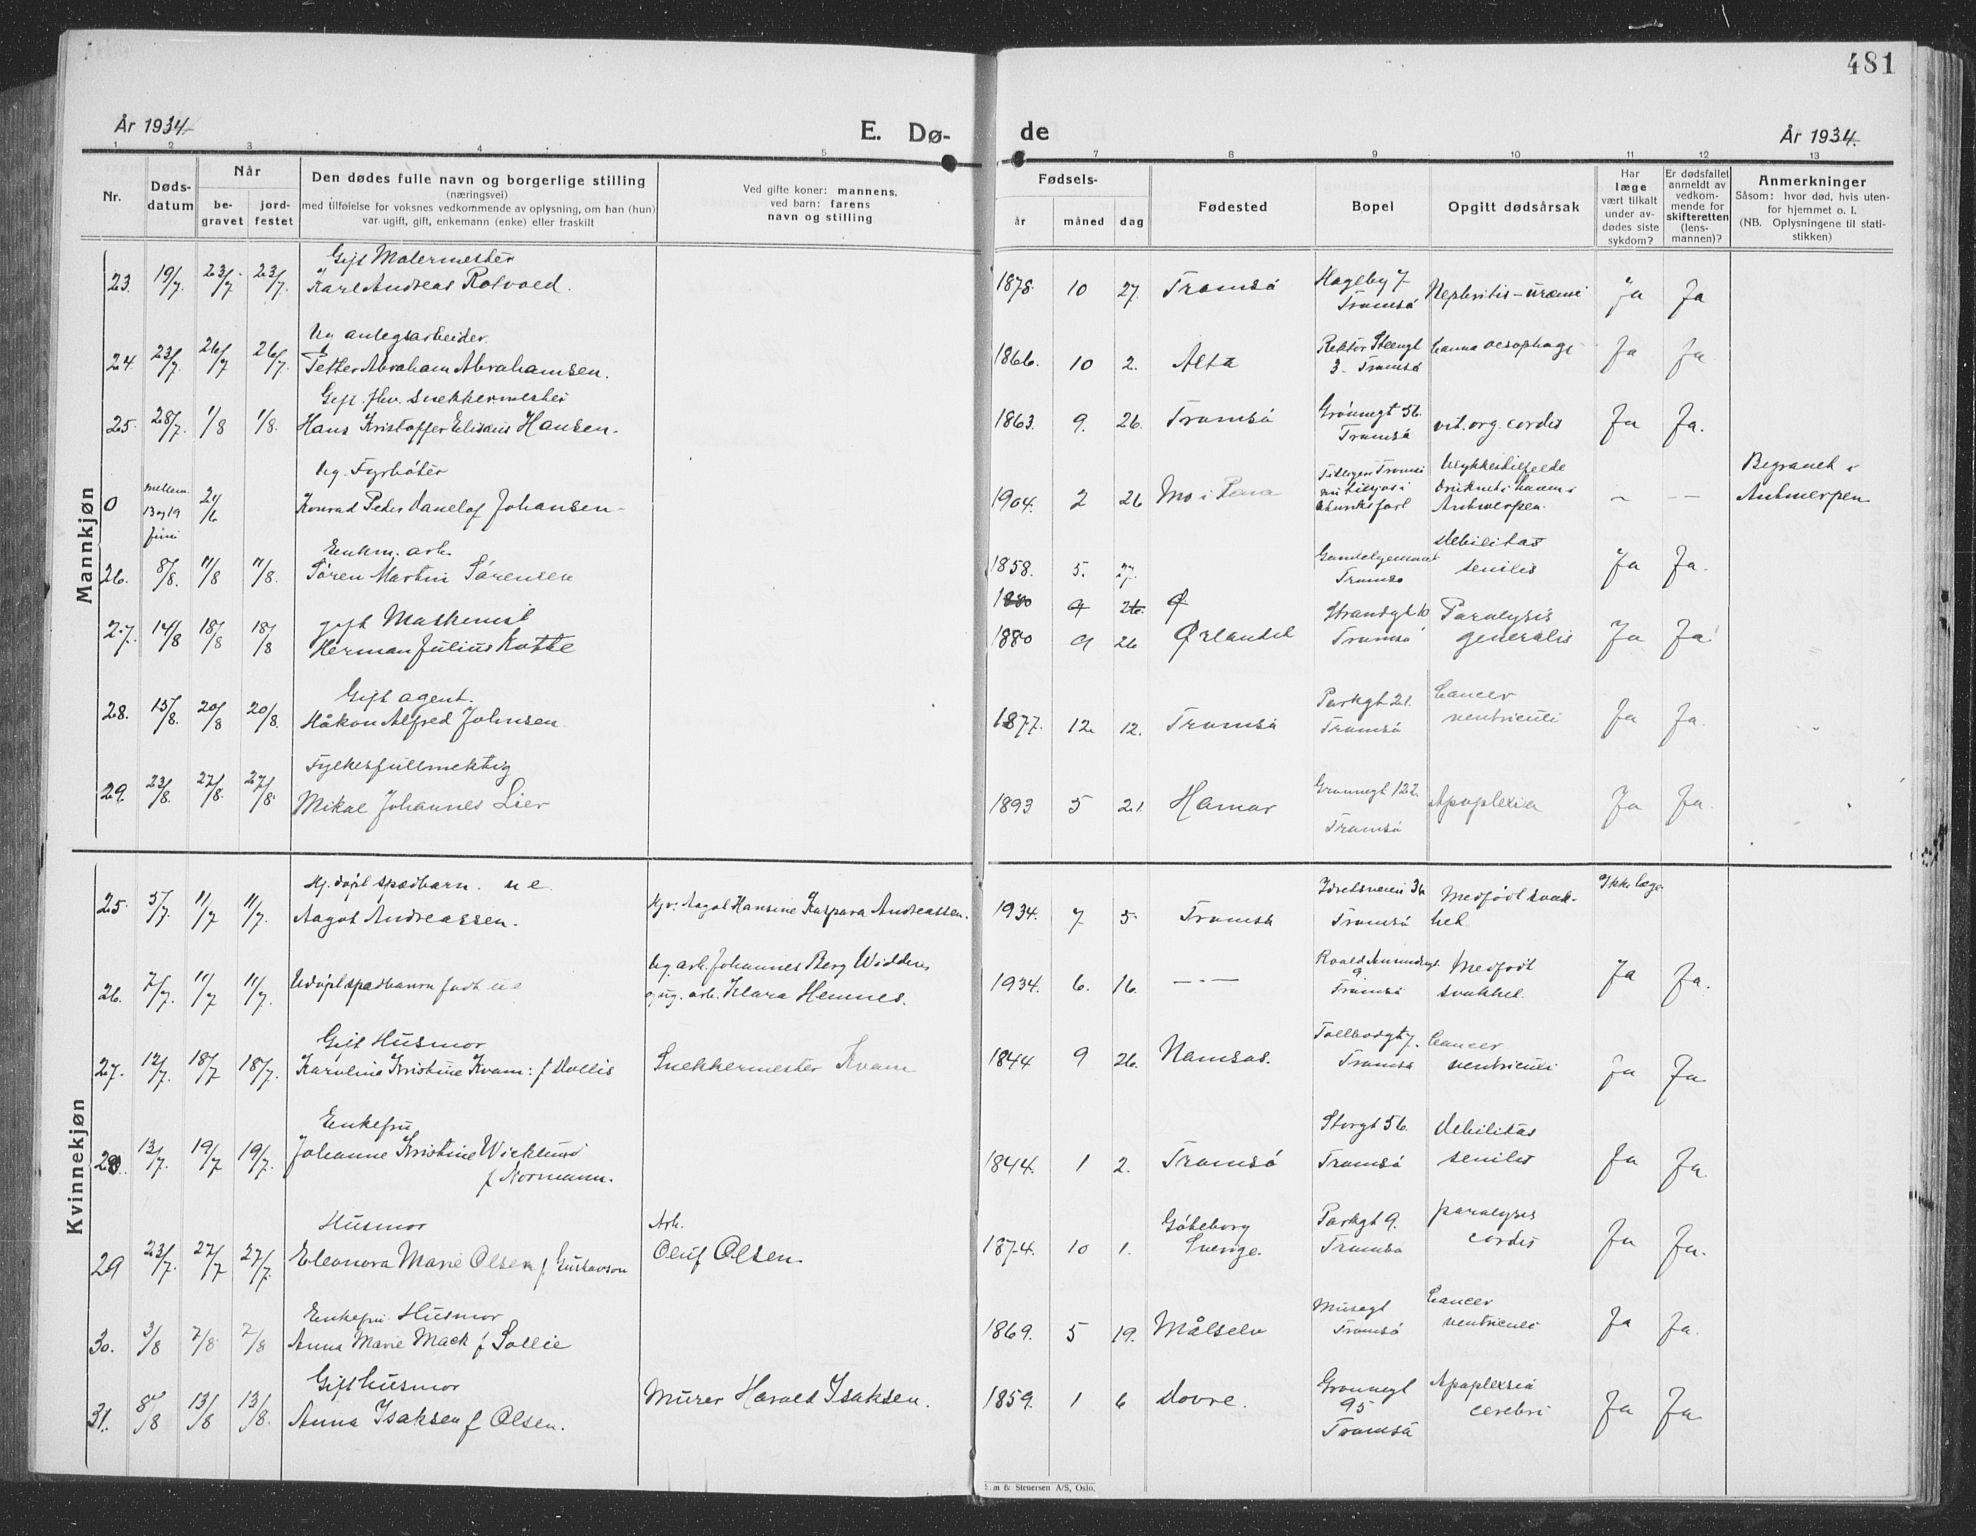 481
År 1934
E. Dø-
de
År 1934.
1 2 3 4 5
7 8 9 10 11 12 13
Nr.
Døds-
datum
Når
be-
gravet
jord-
festet
Den dødes fulle navn og borgerlige stilling
(næringsvei)
med tilføielse for voksnes vedkommende av oplysning, om han (hun)
var ugift, gift, enkemann (enke) eller fraskilt
Ved gifte koner: mannens,
ved barn: farens
navn og stilling
Fødsels-
år
måned
dag
Fødested
Bopel
Opgitt dødsårsak
Har
læge
vært tilkalt
under av-
dødes siste
sykdom?
Er dødsfallet
anmeldt av
vedkom-
mende for
skifteretten
(lens-
mannen)?
Anmerkninger
Såsom: hvor død, hvis uten-
for hjemmet o. l.
(NB. Oplysningene til stati-
stikken)
Mannkjøn
Gift Malermester
23. 19/7. 23/7. 23/7. Karl Andreas Rotvold. 1878. 10 27. Tromsö Hagleby 7 Tromsö Nephritis – uræmi Ja Ja
Ug anlegsarbeider.
24. 23/7. 26/7 26/7. Petter Abraham Abrahamsen. 1866. 10 2. Alta Rektor Steengt 3. Tromsö Ja Ja
Gift. fhv. snekkermester
25. 28/7. 1/8 1/8. Hans Kristoffer Hansen. 1863. 9. 26. Tromsö Grönnegt 56. Tromsö vit. org. cordis Ja Ja.
Ug. Fyrböter
0 mellem 13 og 19 juni 21/6 Konrad Peder Johansen 1904. 2 26 Mo i Rana Antwerpen. — Begravet i Antwerpen
Enkem. arb.
26. 8/8. 11/8 11/8. Sören Martin Sörensen 1858. 5. 27. Tromsö Debilitas senilis Ja Ja.
1880 9 26. Ø
gift Maskinist
27. 14/8 18/8 18/8 Herman Julius Kotte 1880 9 26 Ørlandet Strandgt 10 Tromsö Paralysis generalis Ja Ja
Gift agent.
28. 15/8. 20/8 20/8. Håkon Alfred Johnsen. 1877. 12. 12. Tromsö Parkgt 21. Tromsö Cancer ventriculi Ja Ja.
Fylkesfullmektig
29. 23/8. 27/8. 27/8. Mikal Johannes Lier 1893 5 21. Hamar Grönnegt 122. Tromsö Apoplexia Ja Ja.
Kvinnekjøn
Hj. döpt spædbarn. u e.
25. 5/7. 11/7 11/7. Aagot Andreassen. Mor: Aagot Hansine Kaspara Andreassen. 1934. 7 5. Tromsö Idretsveien 36 Tromsö Medfödt svak- het Ikke læge
26. 7/7. 11/7 11/7. Udöpt spædbarn født ue. Ug. arb. Johannes Berg Widding og ug. arb. Klara Hemnes. 1934. 6. 16. — . — Roald Amundsgt. 9. Tromsö Medfödt svakhet. Ja Ja.
Gift Husmor
27. 12/7. 18/7 18/7. Karoline Kristine Kvam: f Dollis Snekkermester Kvam 1844 9 26. Namsos. Tollbodgt 7. Tromsö Cancer ventriculi Ja Ja
Enkefru
28. 13/7. 19/7 19/7. Johanne Kristine Wicklund f Normann. 1844. 1 2. Tromsö Storgt 56. Tromsö Debilitas senilis Ja Ja.
Husmor
29 23/7. 27/7 27/7. Eleonora Marie Olsen f. Gustavson Arb. Oluf Olsen. 1874. 10 1. Göteborg Sverige. Parkgt 9. Tromsö paralysis cordis Ja Ja.
Enkefru. Husmor
30. 3/8 7/8 7/8 Anna Marie Mack f Sollie 1869. 5 19. Målselv Musegt Tromsö Cancer ventriculi Ja Ja.
Gift husmor
31. 8/8 13/8 13/8. Anna Isaksen f Olsen. Murer Harald Isaksen. 1859. 1 6 Dovre. Grönnegt 95 Tromsö Apoplexia cerebri Ja Ja
& Stenersen A/S, Oslo.